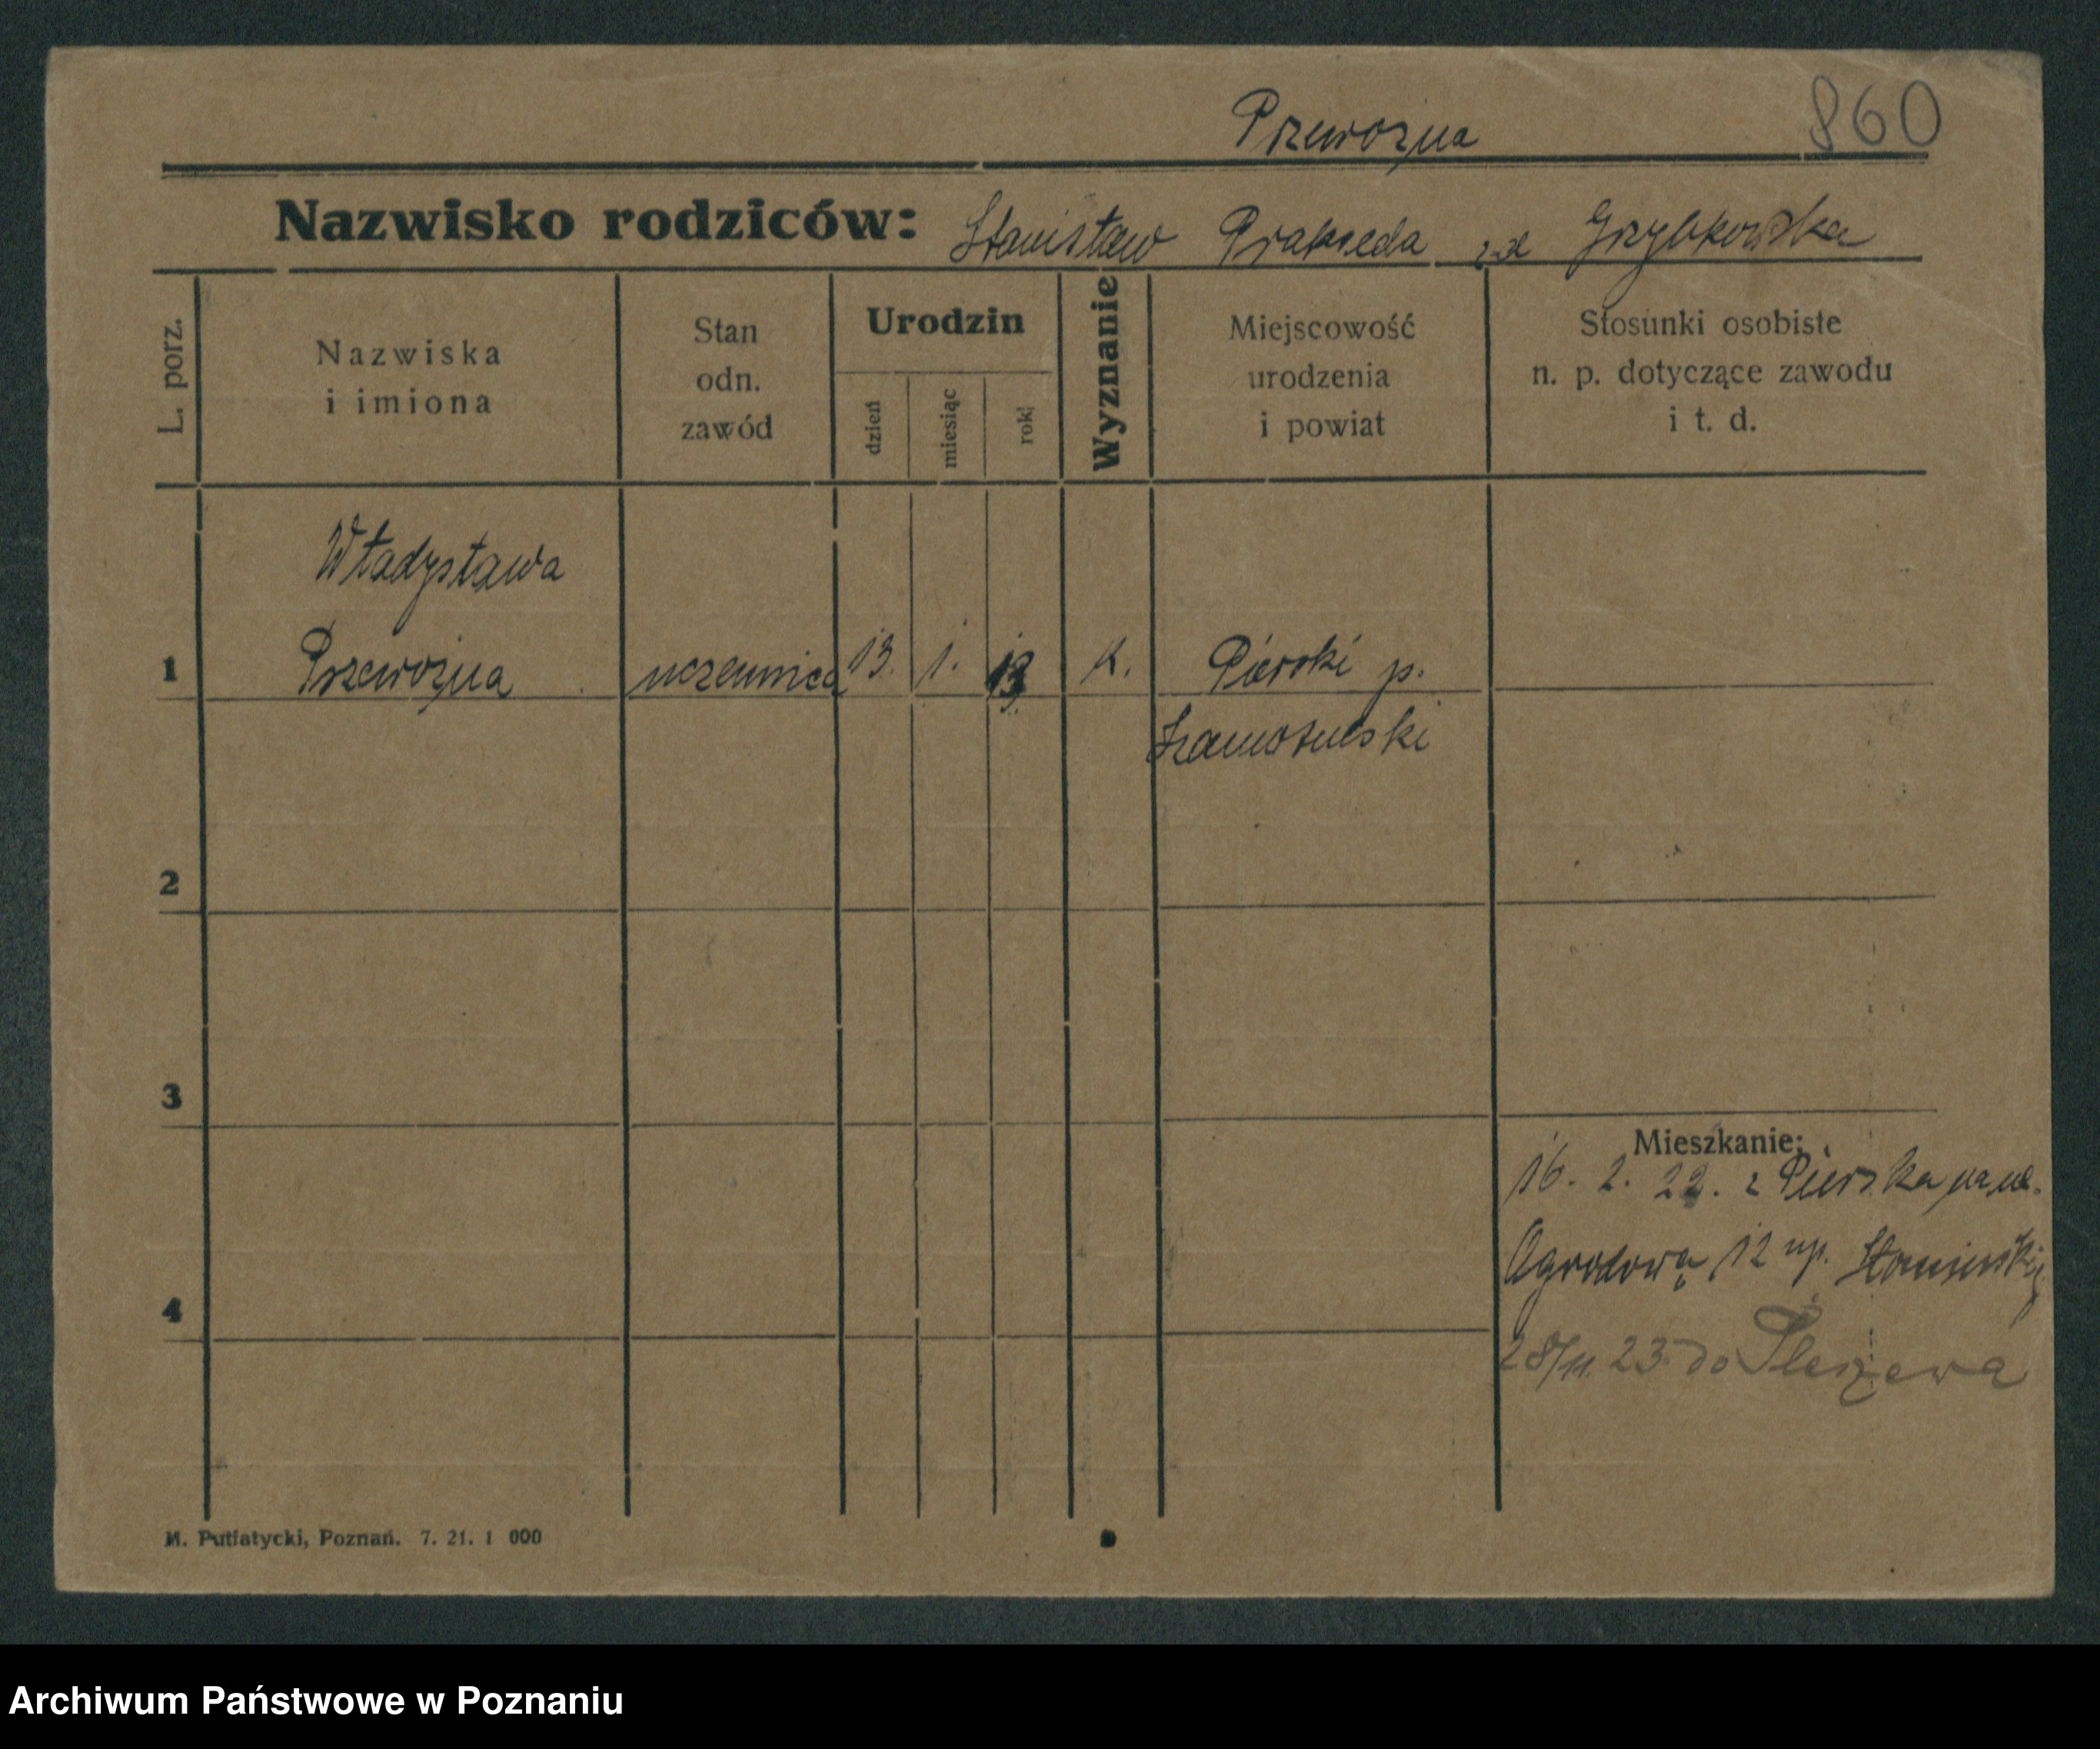 Przewoźna 860
Nazwisko rodziców: Stanisław Prakseda zd Grzybkowska
L. porz.
Nazwiska
i imiona
Stan
odn.
zawód
Urodzin
dzień
miesiąc
rok
Wyznanie
Miejscowość
urodzenia
i powiat
Stosunki osobiste
n. p. dotyczące zawodu
i t. d.
Władysława
1 Przewoźna uczennica 13. 1. 13 K. Pierski p.
Szamotulski
2
3
Mieszkanie:
16. 2. 22. z Pierska na ul.
Ogrodową 12 up.
4
28/11. 23. do Pleszewa
M. Putiatycki, Poznań. 7. 21. 1 000
Archiwum Państwowe w Poznaniu